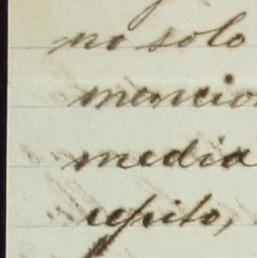 no solo
mencio
media
repito,